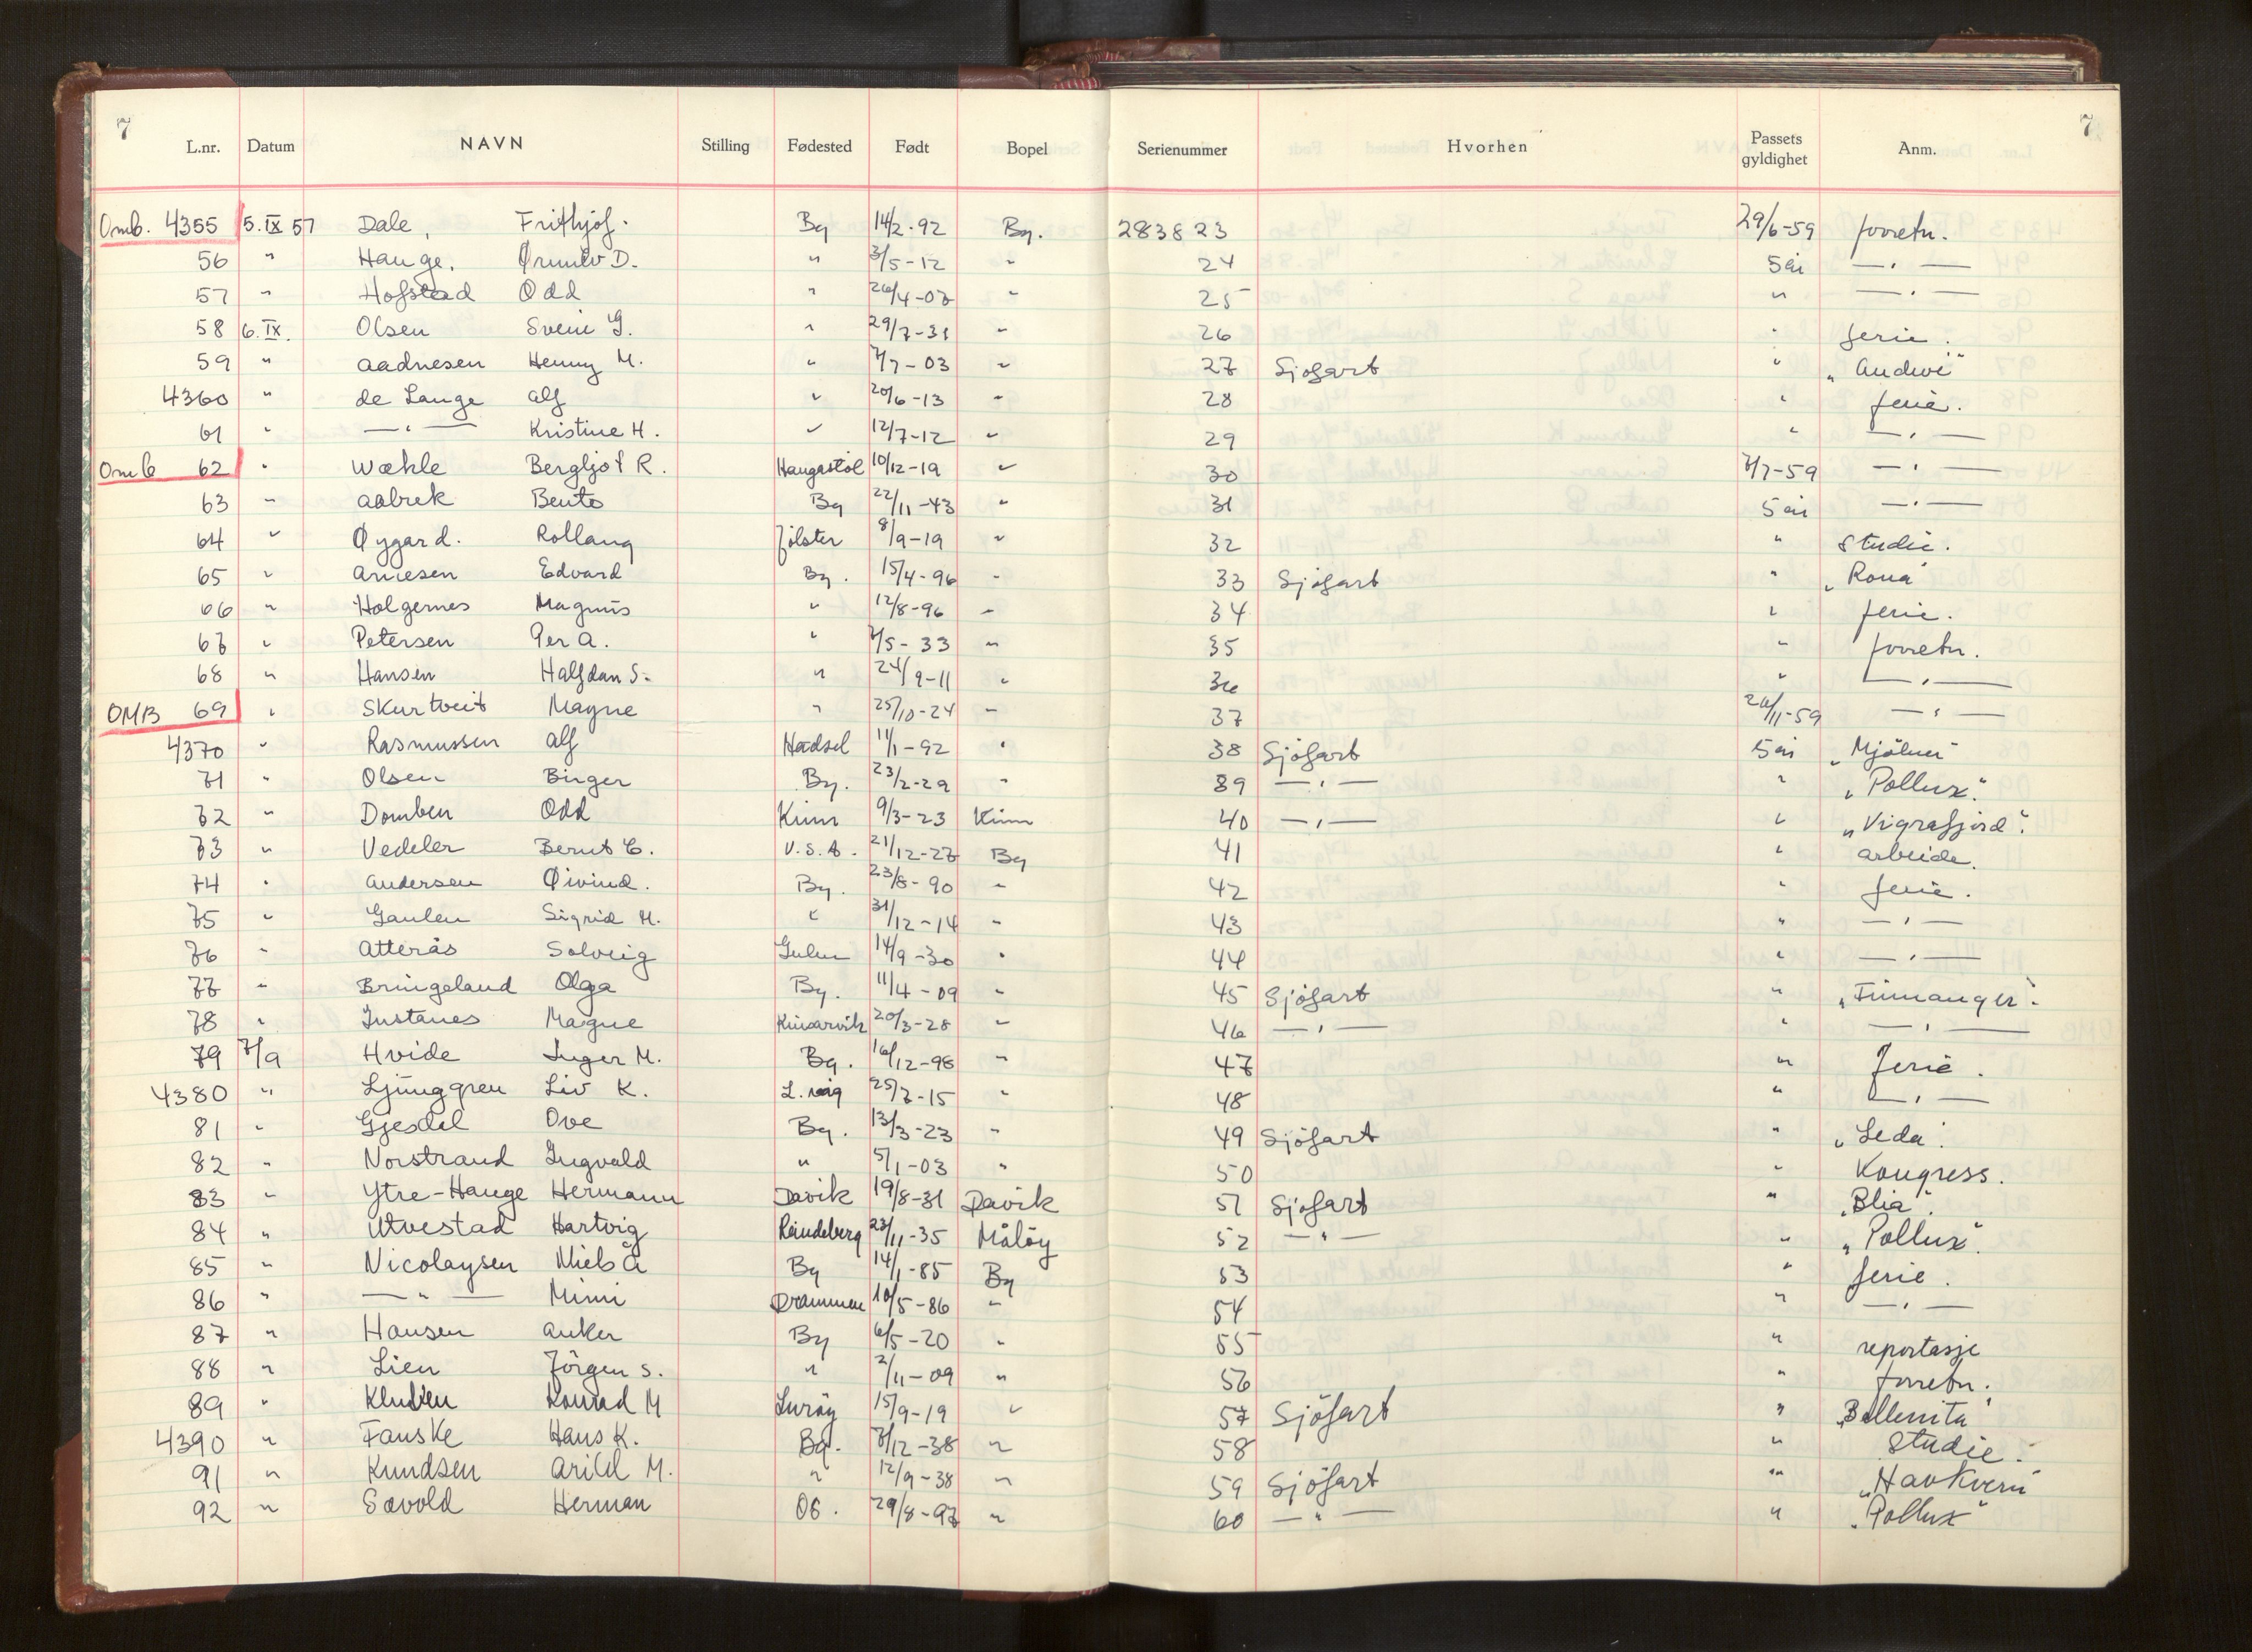 7 7
L.nr. Datum NAVN Stilling Fødested Født Bopel Serienummer Hvorhen Passets gyldighet Anm.
Omb. 4355 5.IX 57 Dale, Frithjof. Bg 14/2-92 Bg. 283823 29/6-59 forretn.
56 " Hauge, D. " 3/5-12 " 24 5 år —"—
57 " Hofstad Odd " 26/4-07 " 25 " —"—
58 6.IX. Olsen Svein G. " 29/7-31 " 26 " ferie.
59 " Aadnesen Henny M. " 7/7-03 " 27 Sjøfart " "
4360 " de Lange Alf " 20/6-13 " 28 " ferie.
61 " —"— Kristine H. " 12/7-12 " 29 " —"—
Omb 62 " Wæhle Bergljot R. Haugastøl 10/12-19 " 30 7/7-59 —"—
63 " Aabrek Bente Bg 22/11-43 " 31 5 år —"—
64 " Øygard. Rollaug Jølster 8/9-19 " 32 " Studie.
65 " Arnesen Edvard Bg. 15/4-96 " 33 Sjøfart " "Rona"
66 " Holgernes Magnus " 12/8-96 " 34 " ferie.
67 " Petersen Per A. " 7/5-33 " 35 " forretn.
68 " Hansen Halfdan S. " 24/9-11 " 36 " —"—
OMB 69 " Skurtveit Magne " 25/10-24 " 37 26/11-59 —"—
4370 " Rasmussen Alf Hadsel 11/1-92 " 38 Sjøfart 5 år "Mjølner"
71 " Olsen Birger Bg. 23/2-29 " 39 —"— " "Pollux".
72 " Domben Odd Kinn 9/3-23 Kinn 40 —"— " "Vigrafjord".
73 " Vedeler Bernt C. U.S.A. 21/12-27 Bg 41 " arbeide.
74 " Andersen Øivind. Bg. 23/8-90 " 42 " ferie.
75 " Gaulen Sigrid M. " 31/12-14 " 43 " —"—
76 " Atterås Solveig Gulen 14/9-30 " 44 " —"—
77 " Bringeland Olga Bg. 11/4-09 " 45 Sjøfart " "Finnanger".
78 " Instanes Magne Kinsarvik 20/3-28 " 46 —"— " —"—
79 7/9 Hvide Inger M. Bg. 16/12-98 " 47 " Ferie.
4380 " Ljunggren Liv K. L.våg 25/7-15 " 48 " —"—
81 " Gjesdal Ove Bg. 13/3-23 " 49 Sjøfart " "Leda".
82 " Norstrand Ingvald " 5/1-03 " 50 " Kongress.
83 " Ytre-Hauge Hermann Davik 19/8-31 Davik 51 Sjøfart " "Blia".
84 " Utvestad Hartvig 23/11-35 Måløy 52 —"— " "Pollux".
85 " Nicolaysen Niels A Bg 14/1-85 Bg 53 " ferie.
86 " —"— Mimi Drammen 10/5-86 " 54 " —"—
87 " Hansen Anker Bg 6/5-20 " 55 " reportasje
88 " Lien Jørgen S. " 2/11-09 " 56 " forretn.
89 " Konrad M Lurøy 15/9-19 " 57 Sjøfart " "Bellenita"
4390 " Fauske Hans K. Bg. 7/12-38 " 58 " Studie.
91 " Knudsen Arild M. " 12/9-38 " 59 Sjøfart " "Havkvern"
92 " Sævold Herman 29/8-97 " 60 —"— " "Pollux"